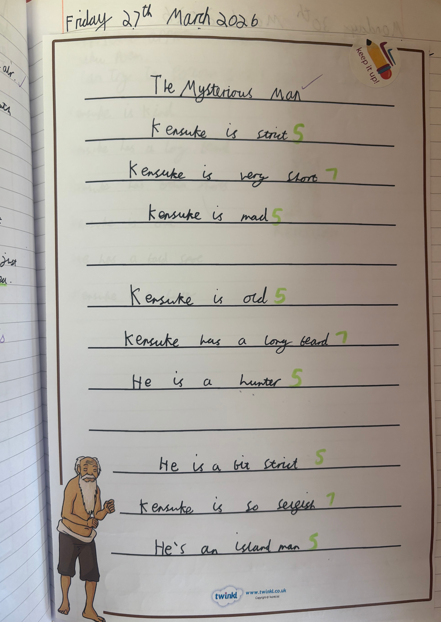 Friday 27th March 2026
keep it up!
The Mysterious Man
Kensuke is strict 5
Kensuke is very short 7
Kensuke is mad 5
Kensuke is old 5
Kensuke has a long beard 7
He is a hunter 5
He is a bit strict 5
Kensuke is so selfish 7
He's an island man 5
twinkl www.twinkl.co.uk